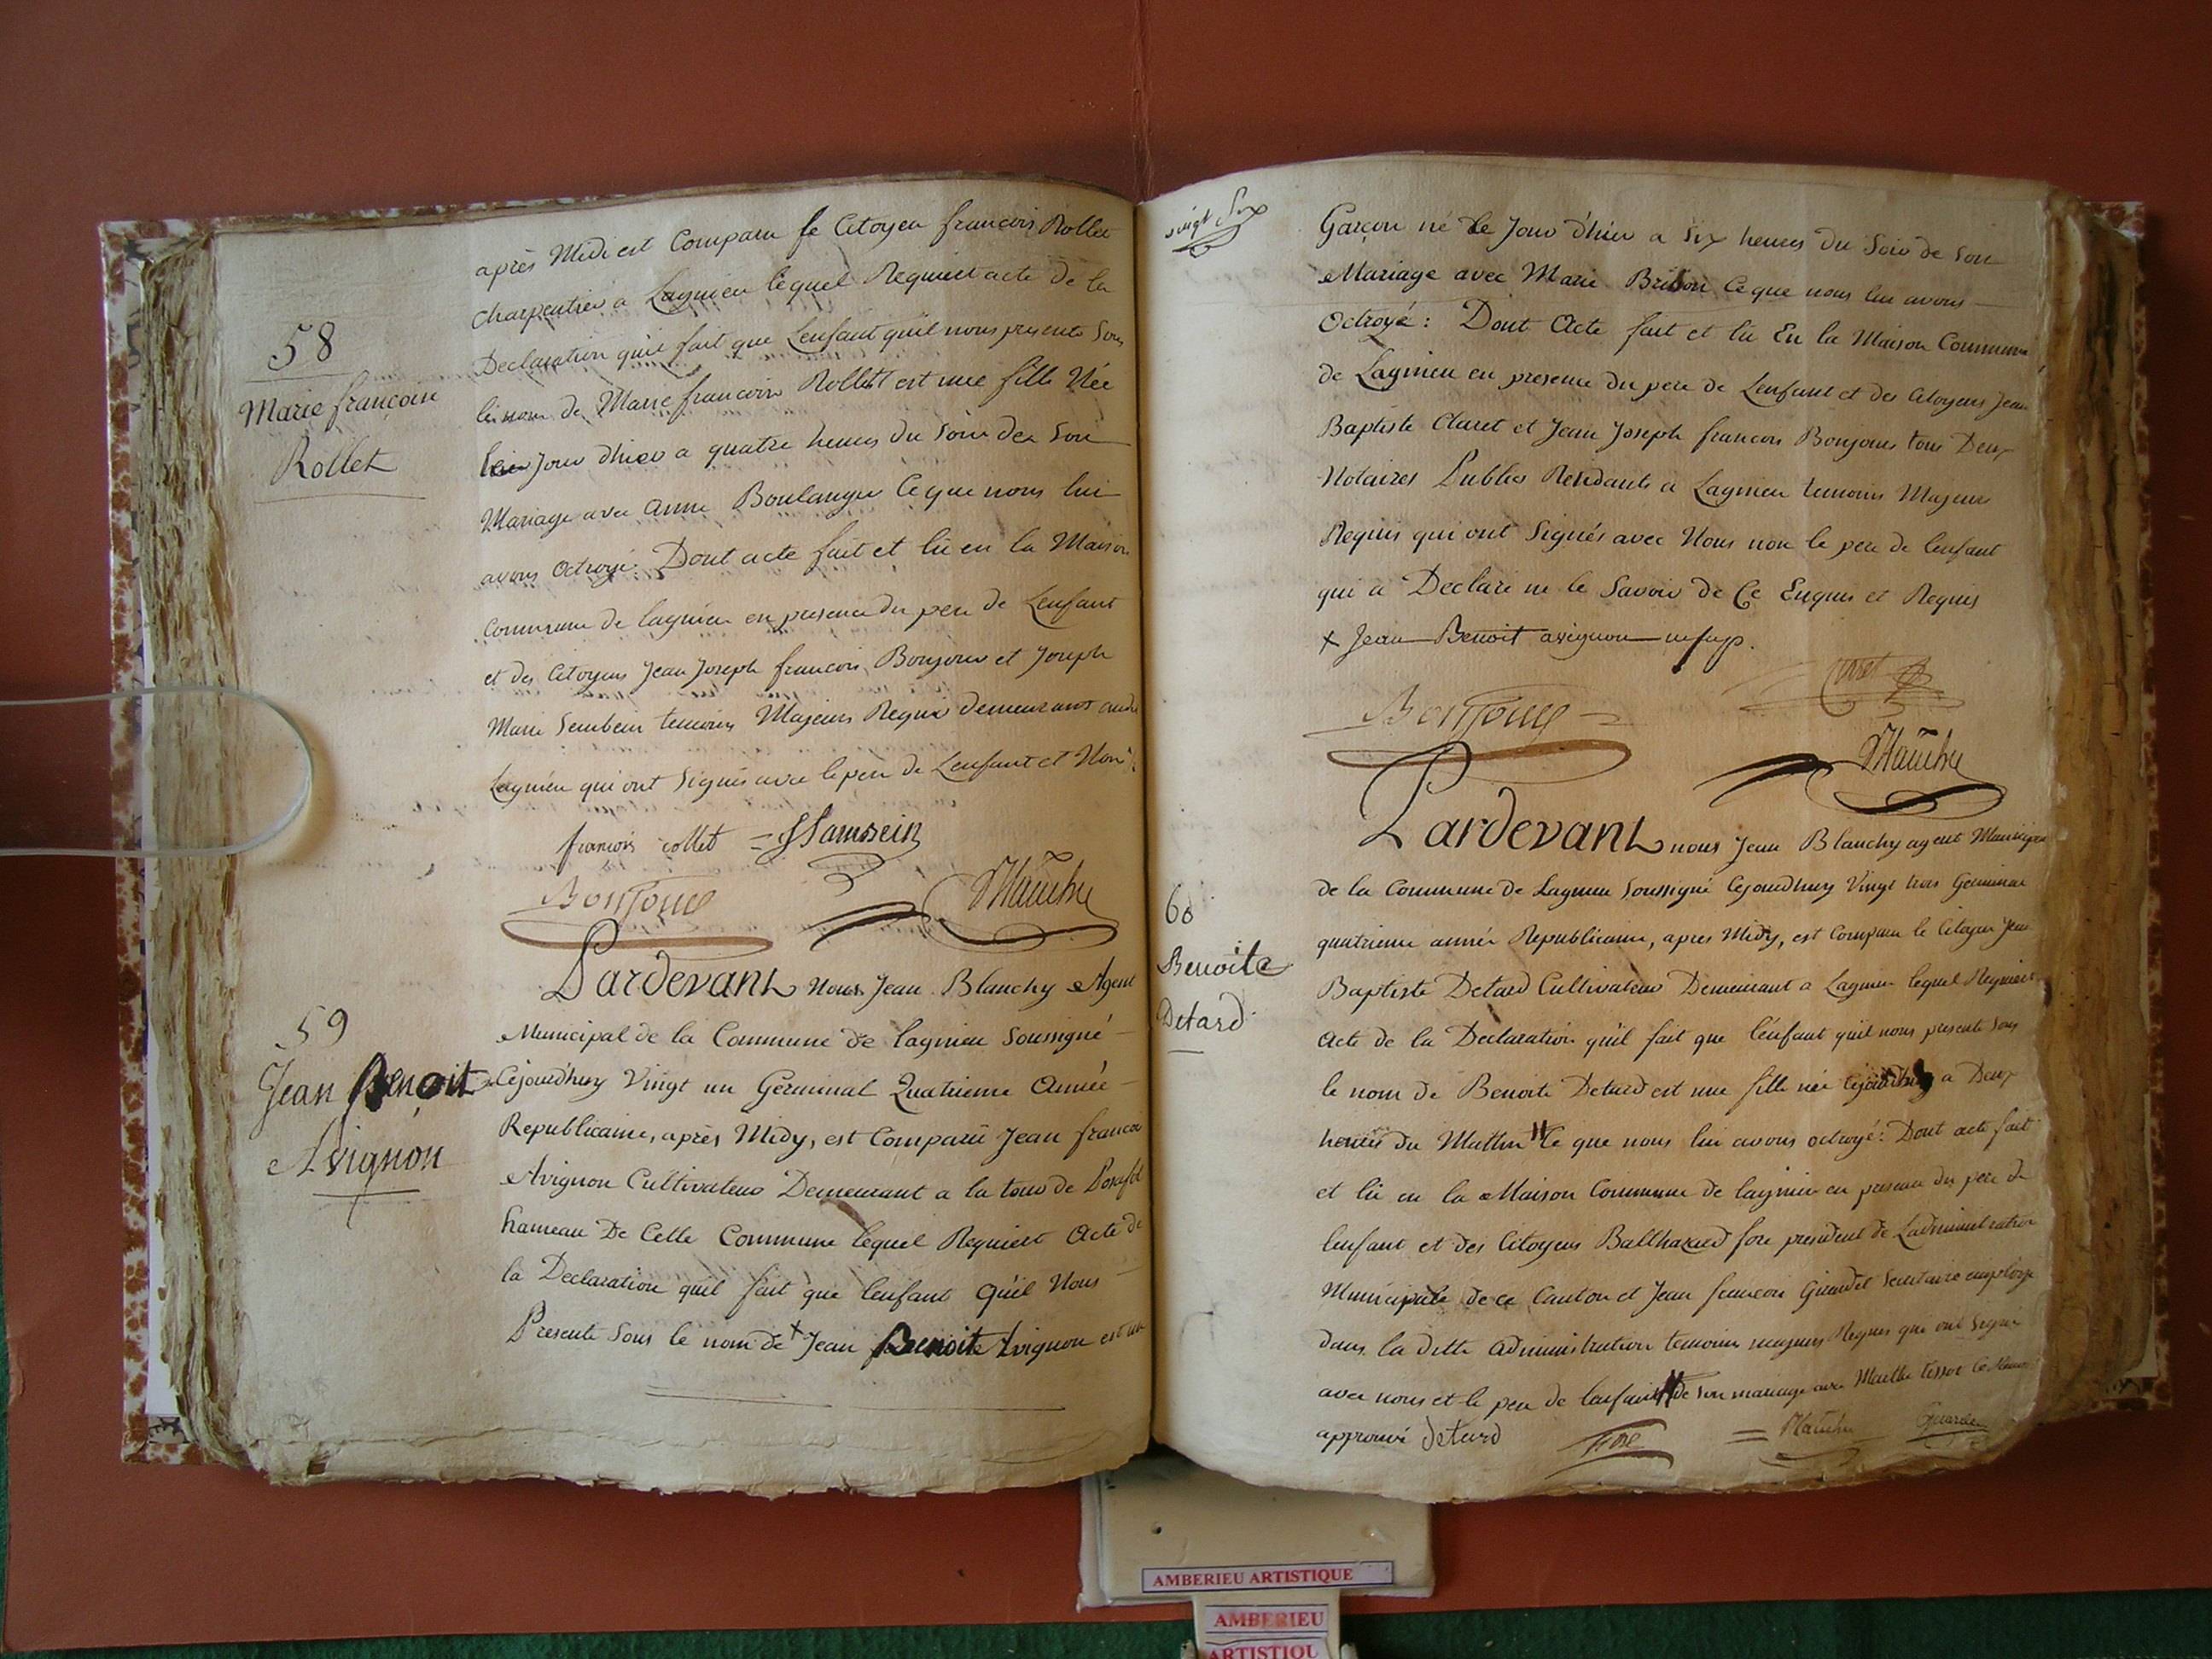 après Midi est Comparu le Citoyen françois Rollet
charpentier a Lagnieu lequel Requiert acte de la
Declaration qu'il fait que Lenfant quil nous presente Sous
le nom de Marie francoise Rollet est une fille Née
le jour dhier a quatre heures du Soir de Son
Mariage avec anne Boulanger Ce que nous lui
avons octroyé. Dont acte fait et lu en la Maison
Commune de lagnieu en presence du pere de Lenfant
et des Citoyens Jean Joseph francois Bonjour et Joseph
Marie temoins Majeurs Requis demeurant audit
Lagnieu qui ont Signés avec le pere de Lenfant et Nous
58
Marie françoise
Rollet
francois rollet
Bonjour
Blanchy
Pardevant Nous Jean Blanchy Agent
Municipal de la Commune de lagnieu Soussigné
Cejourdhuy Vingt un Germinal Quatrieme Année
Republicaine, après Midy, est Comparû Jean francois
Avignon Cultivateur Demeurant a la tour de
hameau De Cette Commune lequel Requiert Acte de
la Declaration quil fait que lenfant Quil Nous
Presente Sous le nom de + Jean Benoit Avignon est un
59
Jean Benoit
Avignon
vingt Six
Garçon né le Jour d'hier a Six heures du Soir de Son
Mariage avec Marie Ce que nous lui avons
Octroyé : Dont Acte fait et lu En la Maison Commune
de Lagnieu en presence du pere de Lenfant et des Citoyens Jean
Baptiste Claret et Jean Joseph francois Bonjour tous Deux
Notaires Publics Residants a Lagnieu temoins Majeurs
Requis qui ont Signés avec Nous non le pere de lenfant
qui a Declaré ne le Savoir de Ce Enquis et Requis
+ Jean Benoit avignon
Claret
Bonjour
Blanchy
Pardevant nous Jean Blanchy agent Municipal
de la Commune de Lagnieu Soussigné Cejourdhuy Vingt trois Germinal
quatrieme année Republicaine, apres Midy, est Comparu le Citoyen Jean
Baptiste Detard Cultivateur Demeurant a Lagnieu lequel Requiert
Acte de la Declaration quil fait que l'enfant quil nous presente Sous
le nom de Benoite Detard est une fille née Cejourdhuy a Deux
heures du Mattin # Ce que nous lui avons octroyé : Dont acte fait
et lû en la Maison Commune de lagnieu en presence du pere de
lenfant et des Citoyens Balthazard fore president de Ladministration
Municipale de ce Canton et Jean francois Girardet Secretaire employé
dans la ditte administration temoins majeurs Requis qui ont Signé
avec nous et le pere de lenfant # de Son mariage avec Marthe tessot
approuvé detard
Blanchy
60
Benoite
Detard
AMBERIEU ARTISTIQUE
AMBERIEU